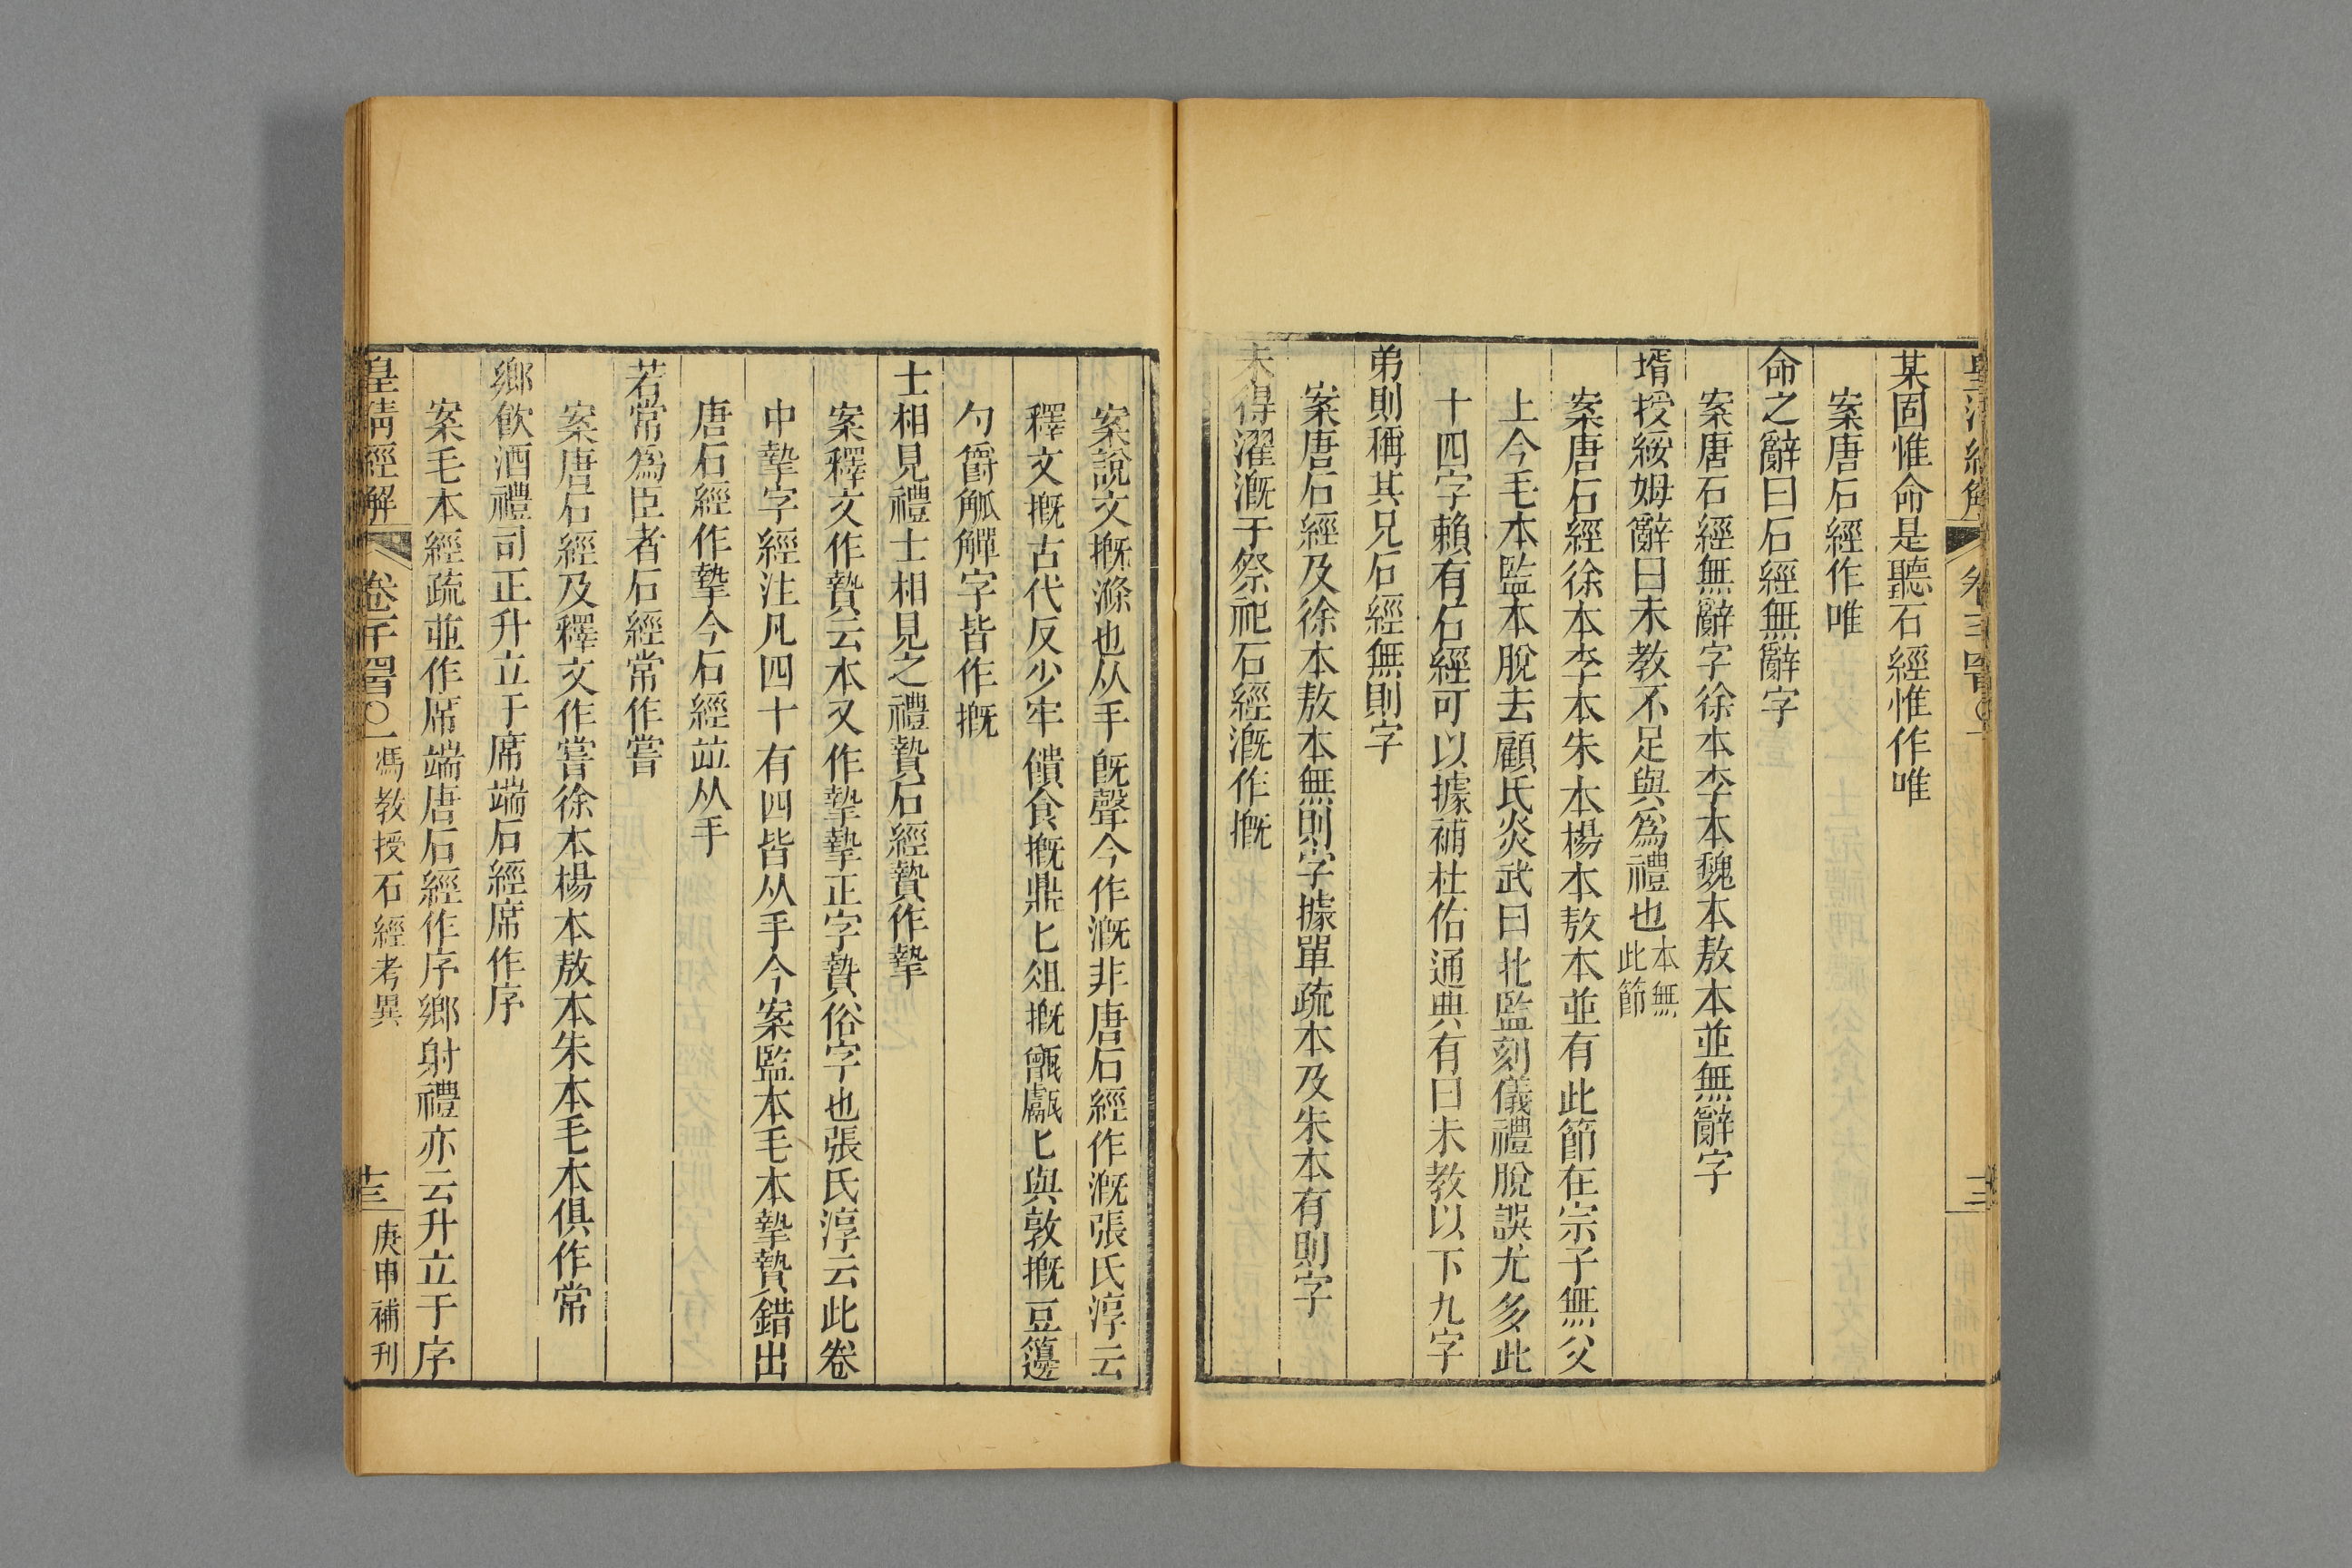 某固惟命是聽石經惟作唯
案唐石經作唯
命之辭曰石經無辭字
案唐石經無辭字徐本李本魏本敖本並無辭字
壻授綏姆辭曰未教不足與爲禮也本無此節
案唐石經徐本李本朱本楊本敖本並有此節在宗子無父
上今毛本監本脫去顧氏炎武曰北監刻儀禮脫誤尤多此
十四字賴有石經可以據補杜佑通典有曰未教以下九字
弟則稱其兄石經無則字
案唐石經及徐本敖本無則字據單疏本及朱本有則字
未得濯漑于祭祀石經漑作摡
案說文摡滌也从手旣聲今作漑非唐石經作漑張氏淳云
釋文摡古代反少牢饋食摡鼎匕俎摡甑甗匕與敦摡豆籩
勺爵觚觶字皆作摡
士相見禮士相見之禮贄石經贄作摯
案釋文作贄云本又作摯摯正字贄俗字也張氏淳云此卷
中摯字經注凡四十有四皆从手今案監本毛本摯贄錯出
唐石經作摯今石經並从手
若常爲臣者石經常作嘗
案唐石經及釋文作嘗徐本楊本敖本朱本毛本俱作常
鄉飮酒禮司正升立于席端石經席作序
案毛本經疏並作席端唐石經作序鄉射禮亦云升立于序
皇淸經解 卷一千四百〇一 馮教授石經考異 十三 庚申補刊